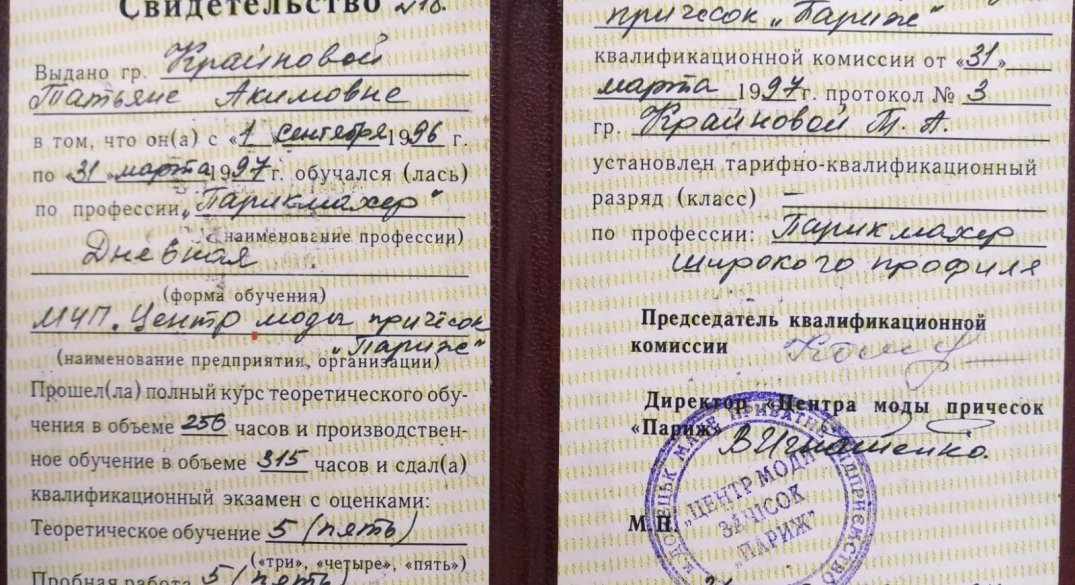 Свидетельство №218.
Выдано гр. Крайновой
Татьяне Акимовне
в том, что он(а) с «1» сентября 1996 г.
по «31» марта 1997 г. обучался (лась)
по профессии „Парикмахер“
(наименование профессии)
Дневная
(форма обучения)
МЧП. Центр моды причёсок
„Париж“
(наименование предприятия, организации)
Прошел(ла) полный курс теоретического обу-
чения в объеме 256 часов и производствен-
ное обучение в объеме 315 часов и сдал(а)
квалификационный экзамен с оценками:
Теоретическое обучение 5 (пять)
(«три», «четыре», «пять»)
Пробная работа 5 (пять)
причесок „Париж“
квалификационной комиссии от «31»
марта 1997 г. протокол № 3
гр. Крайновой Т. А.
установлен тарифно-квалификационный
разряд (класс) —
по профессии: Парикмахер
широкого профиля
Председатель квалификационной
комиссии
Директор «Центра моды причесок
«Париж» В Игнатенко.
М.П.
"ЦЕНТР МОДИ
ЗАЧІСОК
"ПАРИЖ"